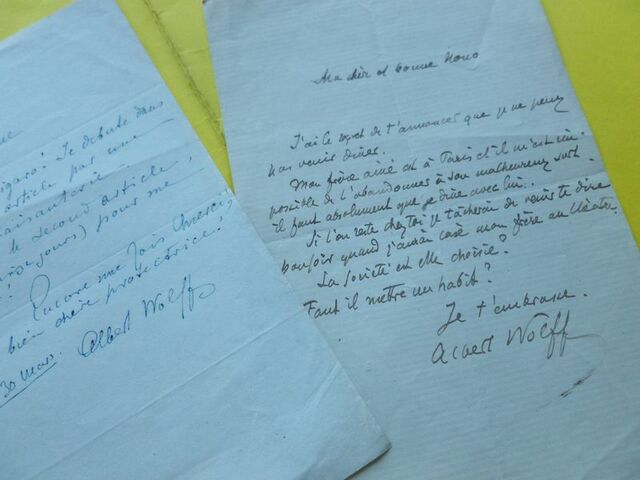 Figaro! Je débute dans
article par une
plaisanterie.
le second article,
jours) pour me
Encore une fois merci,
bien chère protectrice!
30 mars. Albert Wolff
Ma chère et bonne Nono
J'ai le regret de t'annoncer que je ne peux
pas venir dîner.
Mon frère aîné est à Paris et il m'est im-
possible de l'abandonner à son malheureux sort.
il faut absolument que je dîne avec lui.
Si l'on reste chez toi je tâcherai de venir te dire
bonjour quand j'aurai casé mon frère au théâtre.
La société est elle choisie?
Faut il mettre un habit?
Je t'embrasse.
Albert Wolff